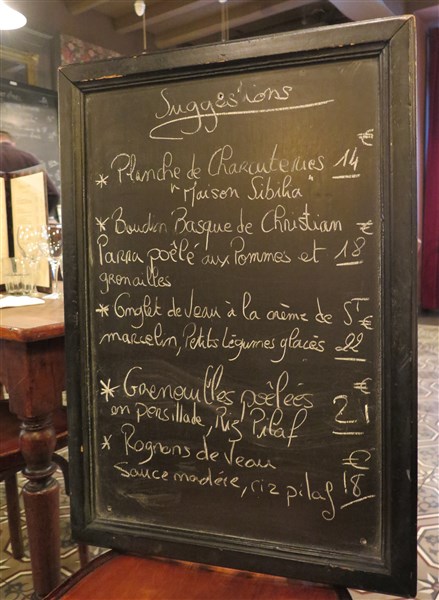 Suggestions
€
* Planche de Charcuteries 14
"Maison Sibilia"
* Boudin Basque de Christian €
Parra poêlé aux Pommes et 18
grenailles
* Onglet de veau à la crème de ST
marcelin, Petits légumes glacés 22 €
* Grenouilles poêlées €
en persillade, Riz Pilaf 21
* Rognons de veau €
sauce madère, riz pilaf 18